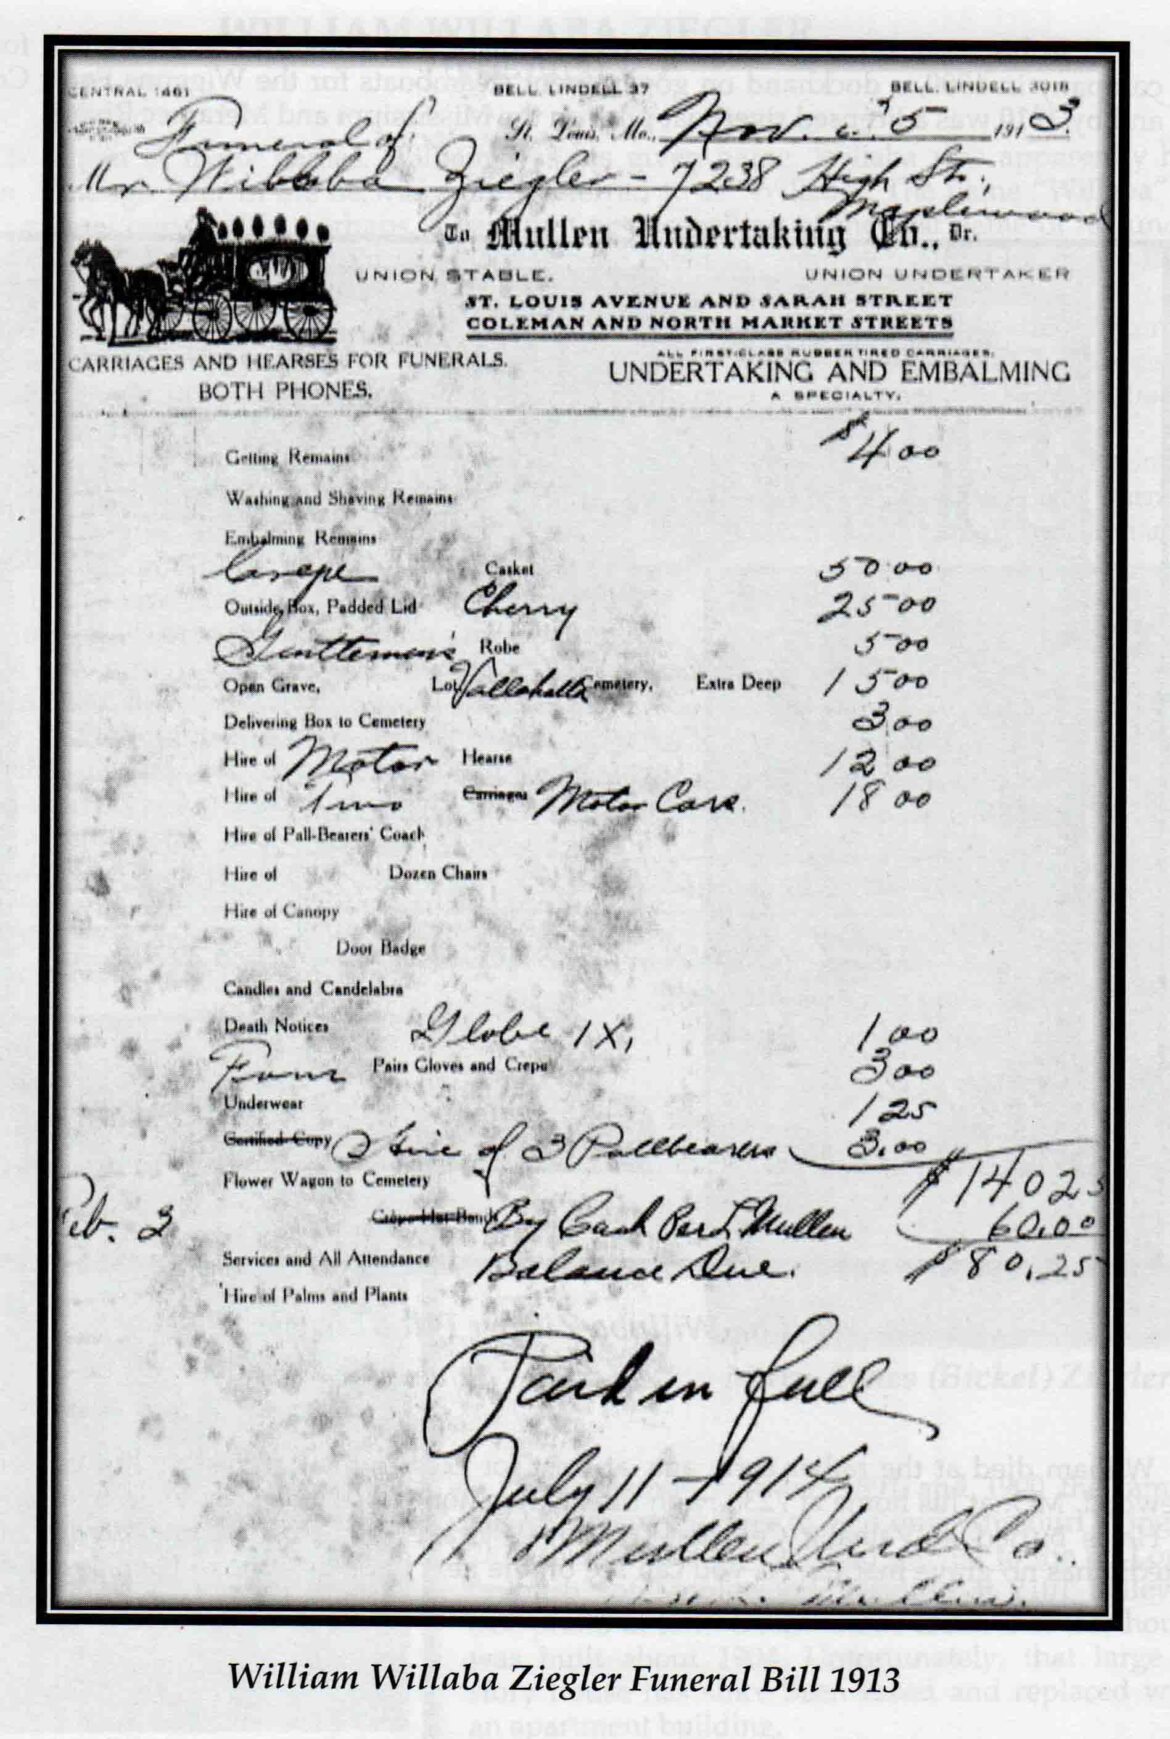 CENTRAL 1461 BELL. LINDELL 37 BELL. LINDELL 3018
Funeral of St. Louis, Mo., Nov. 25 1913.
Mr Willaba Ziegler - 7238 High St.,
Maplewood
To Mullen Undertaking Co., Dr.
UNION STABLE. UNION UNDERTAKER
ST. LOUIS AVENUE AND SARAH STREET
COLEMAN AND NORTH MARKET STREETS
CARRIAGES AND HEARSES FOR FUNERALS.
BOTH PHONES.
ALL FIRST-CLASS RUBBER TIRED CARRIAGES.
UNDERTAKING AND EMBALMING
A SPECIALTY.
Getting Remains $4 00
Washing and Shaving Remains
Embalming Remains
Crepe Casket 50 00
Outside Box, Padded Lid Cherry 25 00
Gentlemen's Robe 5 00
Open Grave, Lot Vallahalla Cemetery, Extra Deep 15 00
Delivering Box to Cemetery 3 00
Hire of Motor Hearse 12 00
Hire of Two Carriages Motor Cars. 18 00
Hire of Pall-Bearers' Coach
Hire of Dozen Chairs
Hire of Canopy
Door Badge
Candles and Candelabra
Death Notices Globe 1X, 1 00
Four Pairs Gloves and Crepe 3 00
Underwear 1 25
Certified Copy Hire of 3 Pallbearers 3.00
$140 25
Flower Wagon to Cemetery
Feb. 2 Crêpe Hat Bands By Cash Per Mullen 60.00
Services and All Attendance Balance Due. $80.25
Hire of Palms and Plants
Paid in full
July 11 - 1914
Mullen Und Co.
William Willaba Ziegler Funeral Bill 1913